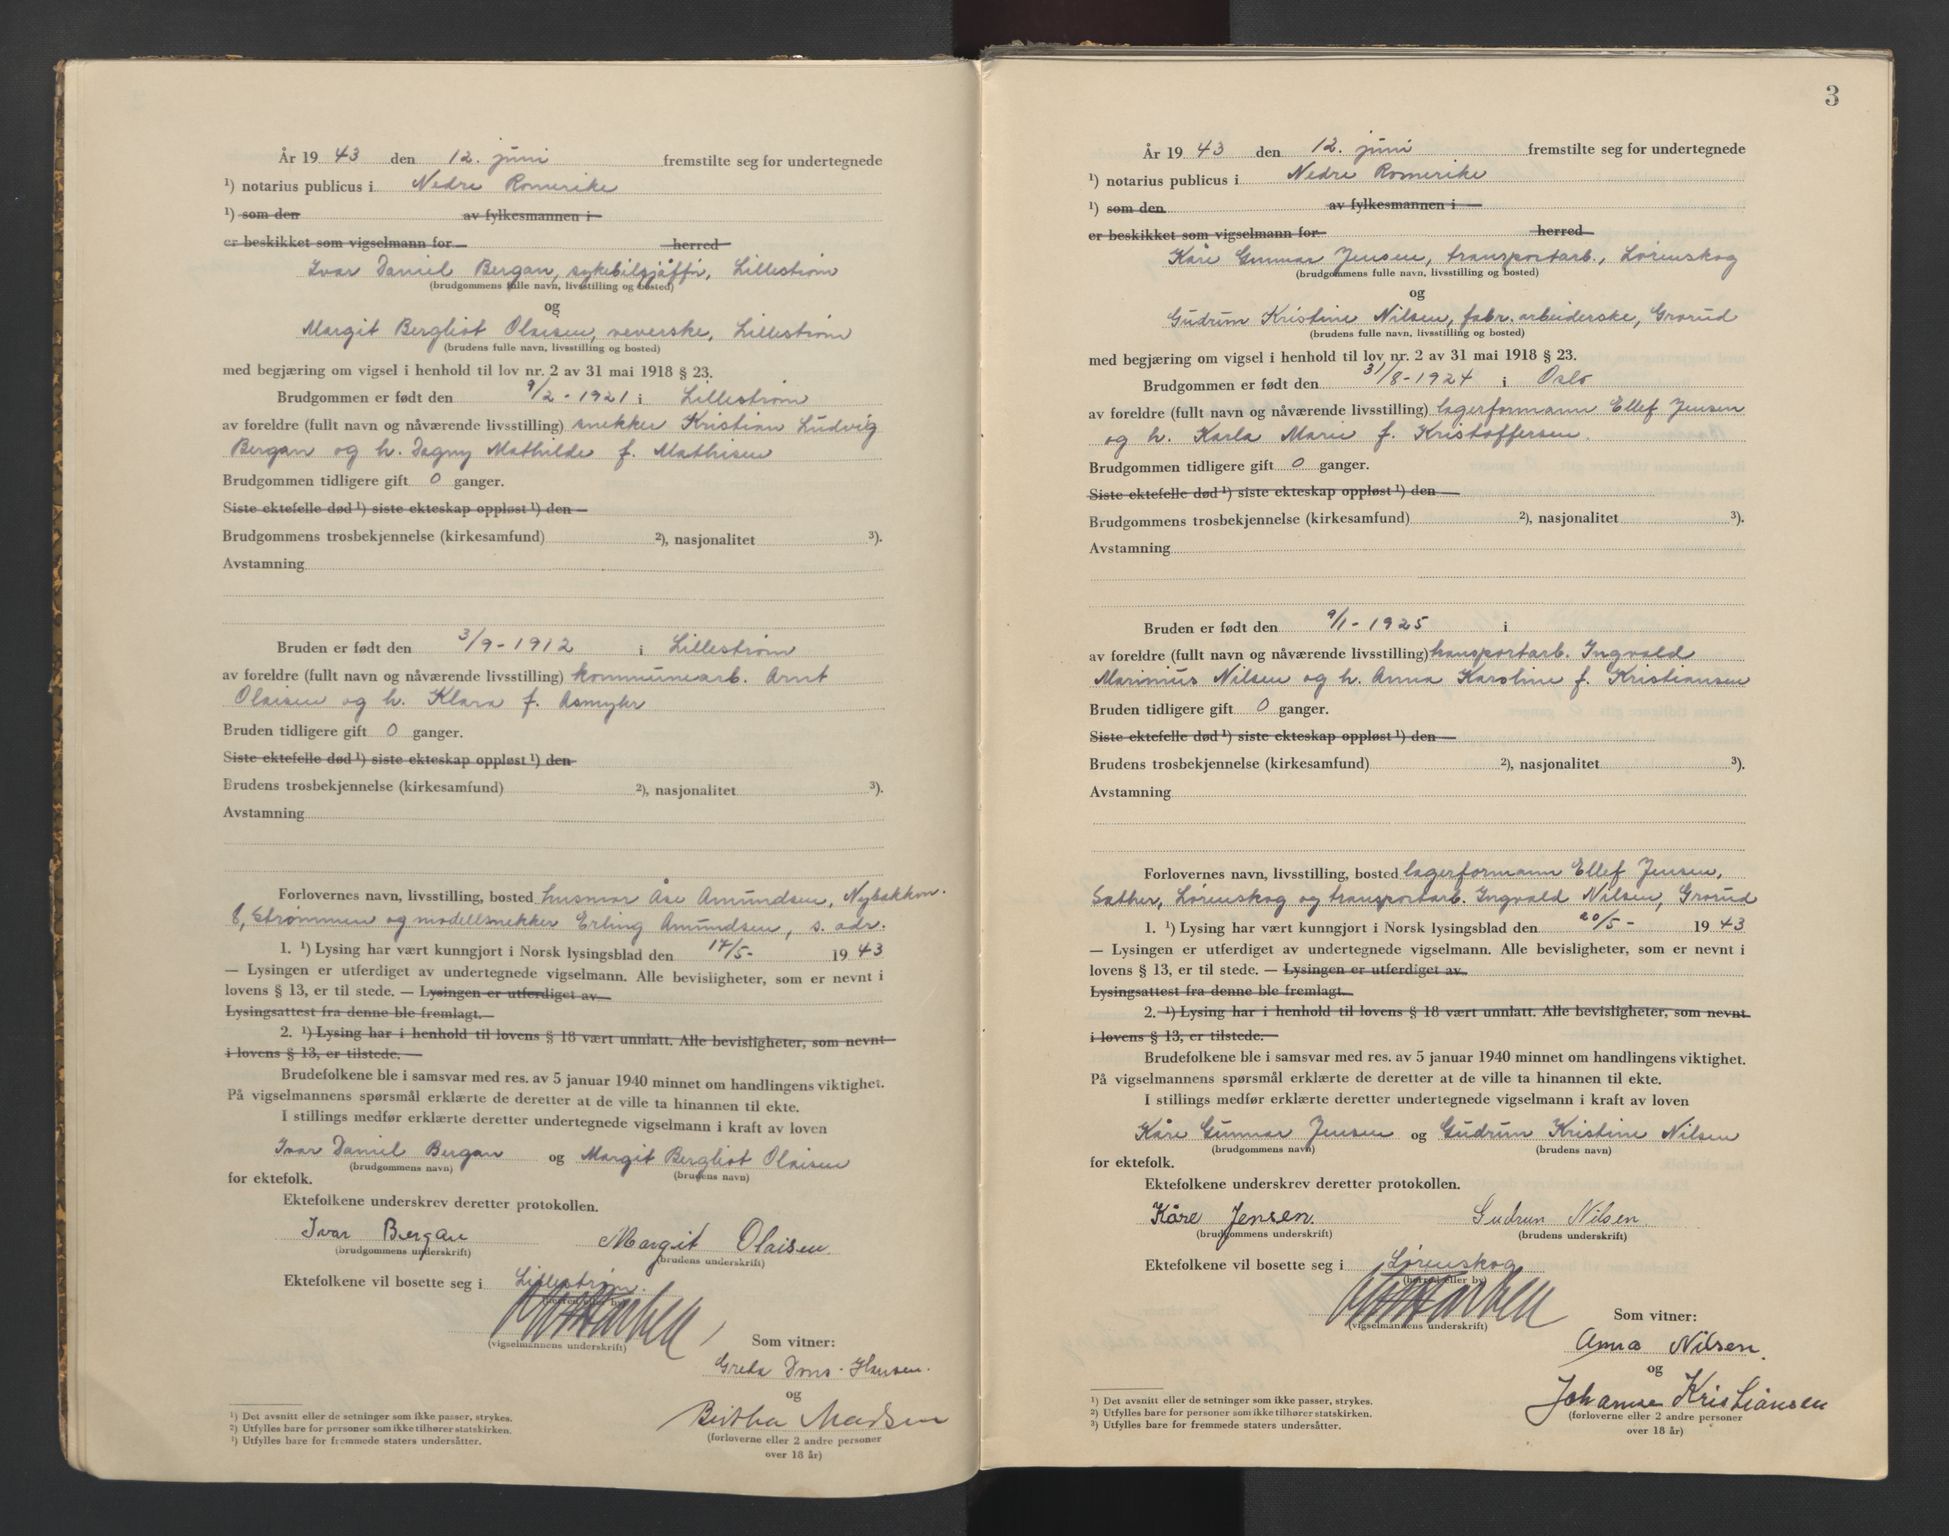 År 19 43 den 12. juni fremstilte seg for undertegnede
¹) notarius publicus i Nedre Romerike
¹) som den av fylkesmannen i
er beskikket som vigselmann for herred
Ivar Daniel Bergan, sykebilsjåfför, Lillestrøm
(brudgommens fulle navn, livsstilling og bosted)
og
Margit Bergliot Olaisen, veverske, Lillestrøm
(brudens fulle navn, livsstilling og bosted)
med begjæring om vigsel i henhold til lov nr. 2 av 31 mai 1918 § 23.
Brudgommen er født den 9/2 - 1921 i Lillestrøm
av foreldre (fullt navn og nåværende livsstilling) snekker Kristian Ludvig
Bergan og h. Dagny Mathilde f. Mathisen
Brudgommen tidligere gift 0 ganger.
Siste ektefelle død ¹) siste ekteskap oppløst ¹) den
Brudgommens trosbekjennelse (kirkesamfund) ²), nasjonalitet ³).
Avstamning
Bruden er født den 3/9 - 1912 i Lillestrøm
av foreldre (fullt navn og nåværende livsstilling) kommunearb. Arnt
Olaisen og h. Klara f. Asmyhr
Bruden tidligere gift 0 ganger.
Siste ektefelle død ¹) siste ekteskap oppløst ¹) den
Brudens trosbekjennelse (kirkesamfund) ²), nasjonalitet ³).
Avstamning
Forlovernes navn, livsstilling, bosted husmor Åse Amundsen, Nybakkvn.
8, Strømmen og modellsnekker Erling Amundsen, s. adr.
1. ¹) Lysing har vært kunngjort i Norsk lysingsblad den 17/5- 19 43
— Lysingen er utferdiget av undertegnede vigselmann. Alle bevisligheter, som er nevnt i
lovens § 13, er til stede. — Lysingen er utferdiget av
Lysingsattest fra denne ble fremlagt.
2. ¹) Lysing har i henhold til lovens § 18 vært unnlatt. Alle bevisligheter, som nevnt
i lovens § 13, er tilstede.
Brudefolkene ble i samsvar med res. av 5 januar 1940 minnet om handlingens viktighet.
På vigselmannens spørsmål erklærte de deretter at de ville ta hinannen til ekte.
I stillings medfør erklærte deretter undertegnede vigselmann i kraft av loven
Ivar Daniel Bergan og Margit Bergliot Olaisen
(brudgommens navn) (brudens navn)
for ektefolk.
Ektefolkene underskrev deretter protokollen.
Ivar Bergan Margit Olaisen
(brudgommens underskrift) (brudens underskrift)
Ektefolkene vil bosette seg i Lillestrøm
(herred eller by)
(vigselmannens underskrift) Som vitner:
Greta Dons-Hansen.
og
Bertha Madsen
(forloverne eller 2 andre personer
over 18 år)
¹) Det avsnitt eller de setninger som ikke passer, strykes.
²) Utfylles bare for personer som ikke tilhører statskirken.
³) Utfylles bare for fremmede staters undersåtter.
3
År 19 43 den 12. juni fremstilte seg for undertegnede
¹) notarius publicus i Nedre Romerike
¹) som den av fylkesmannen i
er beskikket som vigselmann for herred
Kåre Gunnar Jensen, transportarb., Lørenskog
(brudgommens fulle navn, livsstilling og bosted)
og
Gudrun Kristine Nilsen, fabr. arbeiderske, Grorud
(brudens fulle navn, livsstilling og bosted)
med begjæring om vigsel i henhold til lov nr. 2 av 31 mai 1918 § 23.
Brudgommen er født den 31/8 - 1924 i Oslo
av foreldre (fullt navn og nåværende livsstilling) lagerformann Ellef Jensen
og h. Karla Marie f. Kristoffersen.
Brudgommen tidligere gift 0 ganger.
Siste ektefelle død ¹) siste ekteskap oppløst ¹) den
Brudgommens trosbekjennelse (kirkesamfund) ²), nasjonalitet ³).
Avstamning
Bruden er født den 9/1 - 1925 i
av foreldre (fullt navn og nåværende livsstilling) transportarb. Ingvald
Marinius Nilsen og h. Anna Karoline f. Kristiansen
Bruden tidligere gift 0 ganger.
Siste ektefelle død ¹) siste ekteskap oppløst ¹) den
Brudens trosbekjennelse (kirkesamfund) ²), nasjonalitet ³).
Avstamning
Forlovernes navn, livsstilling, bosted lagerformann Ellef Jensen,
Sæther, Lørenskog og transportarb. Ingvald Nilsen, Grorud
1. ¹) Lysing har vært kunngjort i Norsk lysingsblad den 20/5 - 19 43
— Lysingen er utferdiget av undertegnede vigselmann. Alle bevisligheter, som er nevnt i
lovens § 13, er til stede. — Lysingen er utferdiget av
Lysingsattest fra denne ble fremlagt.
2. ¹) Lysing har i henhold til lovens § 18 vært unnlatt. Alle bevisligheter, som nevnt
i lovens § 13, er tilstede.
Brudefolkene ble i samsvar med res. av 5 januar 1940 minnet om handlingens viktighet.
På vigselmannens spørsmål erklærte de deretter at de ville ta hinannen til ekte.
I stillings medfør erklærte deretter undertegnede vigselmann i kraft av loven
Kåre Gunnar Jensen og Gudrun Kristine Nilsen
(brudgommens navn) (brudens navn)
for ektefolk.
Ektefolkene underskrev deretter protokollen.
Kåre Jensen. Gudrun Nilsen.
(brudgommens underskrift) (brudens underskrift)
Ektefolkene vil bosette seg i Lørenskog
(herred eller by)
(vigselmannens underskrift) Som vitner:
Anna Nilsen.
og
Johanne Kristiansen
(forloverne eller 2 andre personer
over 18 år)
¹) Det avsnitt eller de setninger som ikke passer, strykes.
²) Utfylles bare for personer som ikke tilhører statskirken.
³) Utfylles bare for fremmede staters undersåtter.